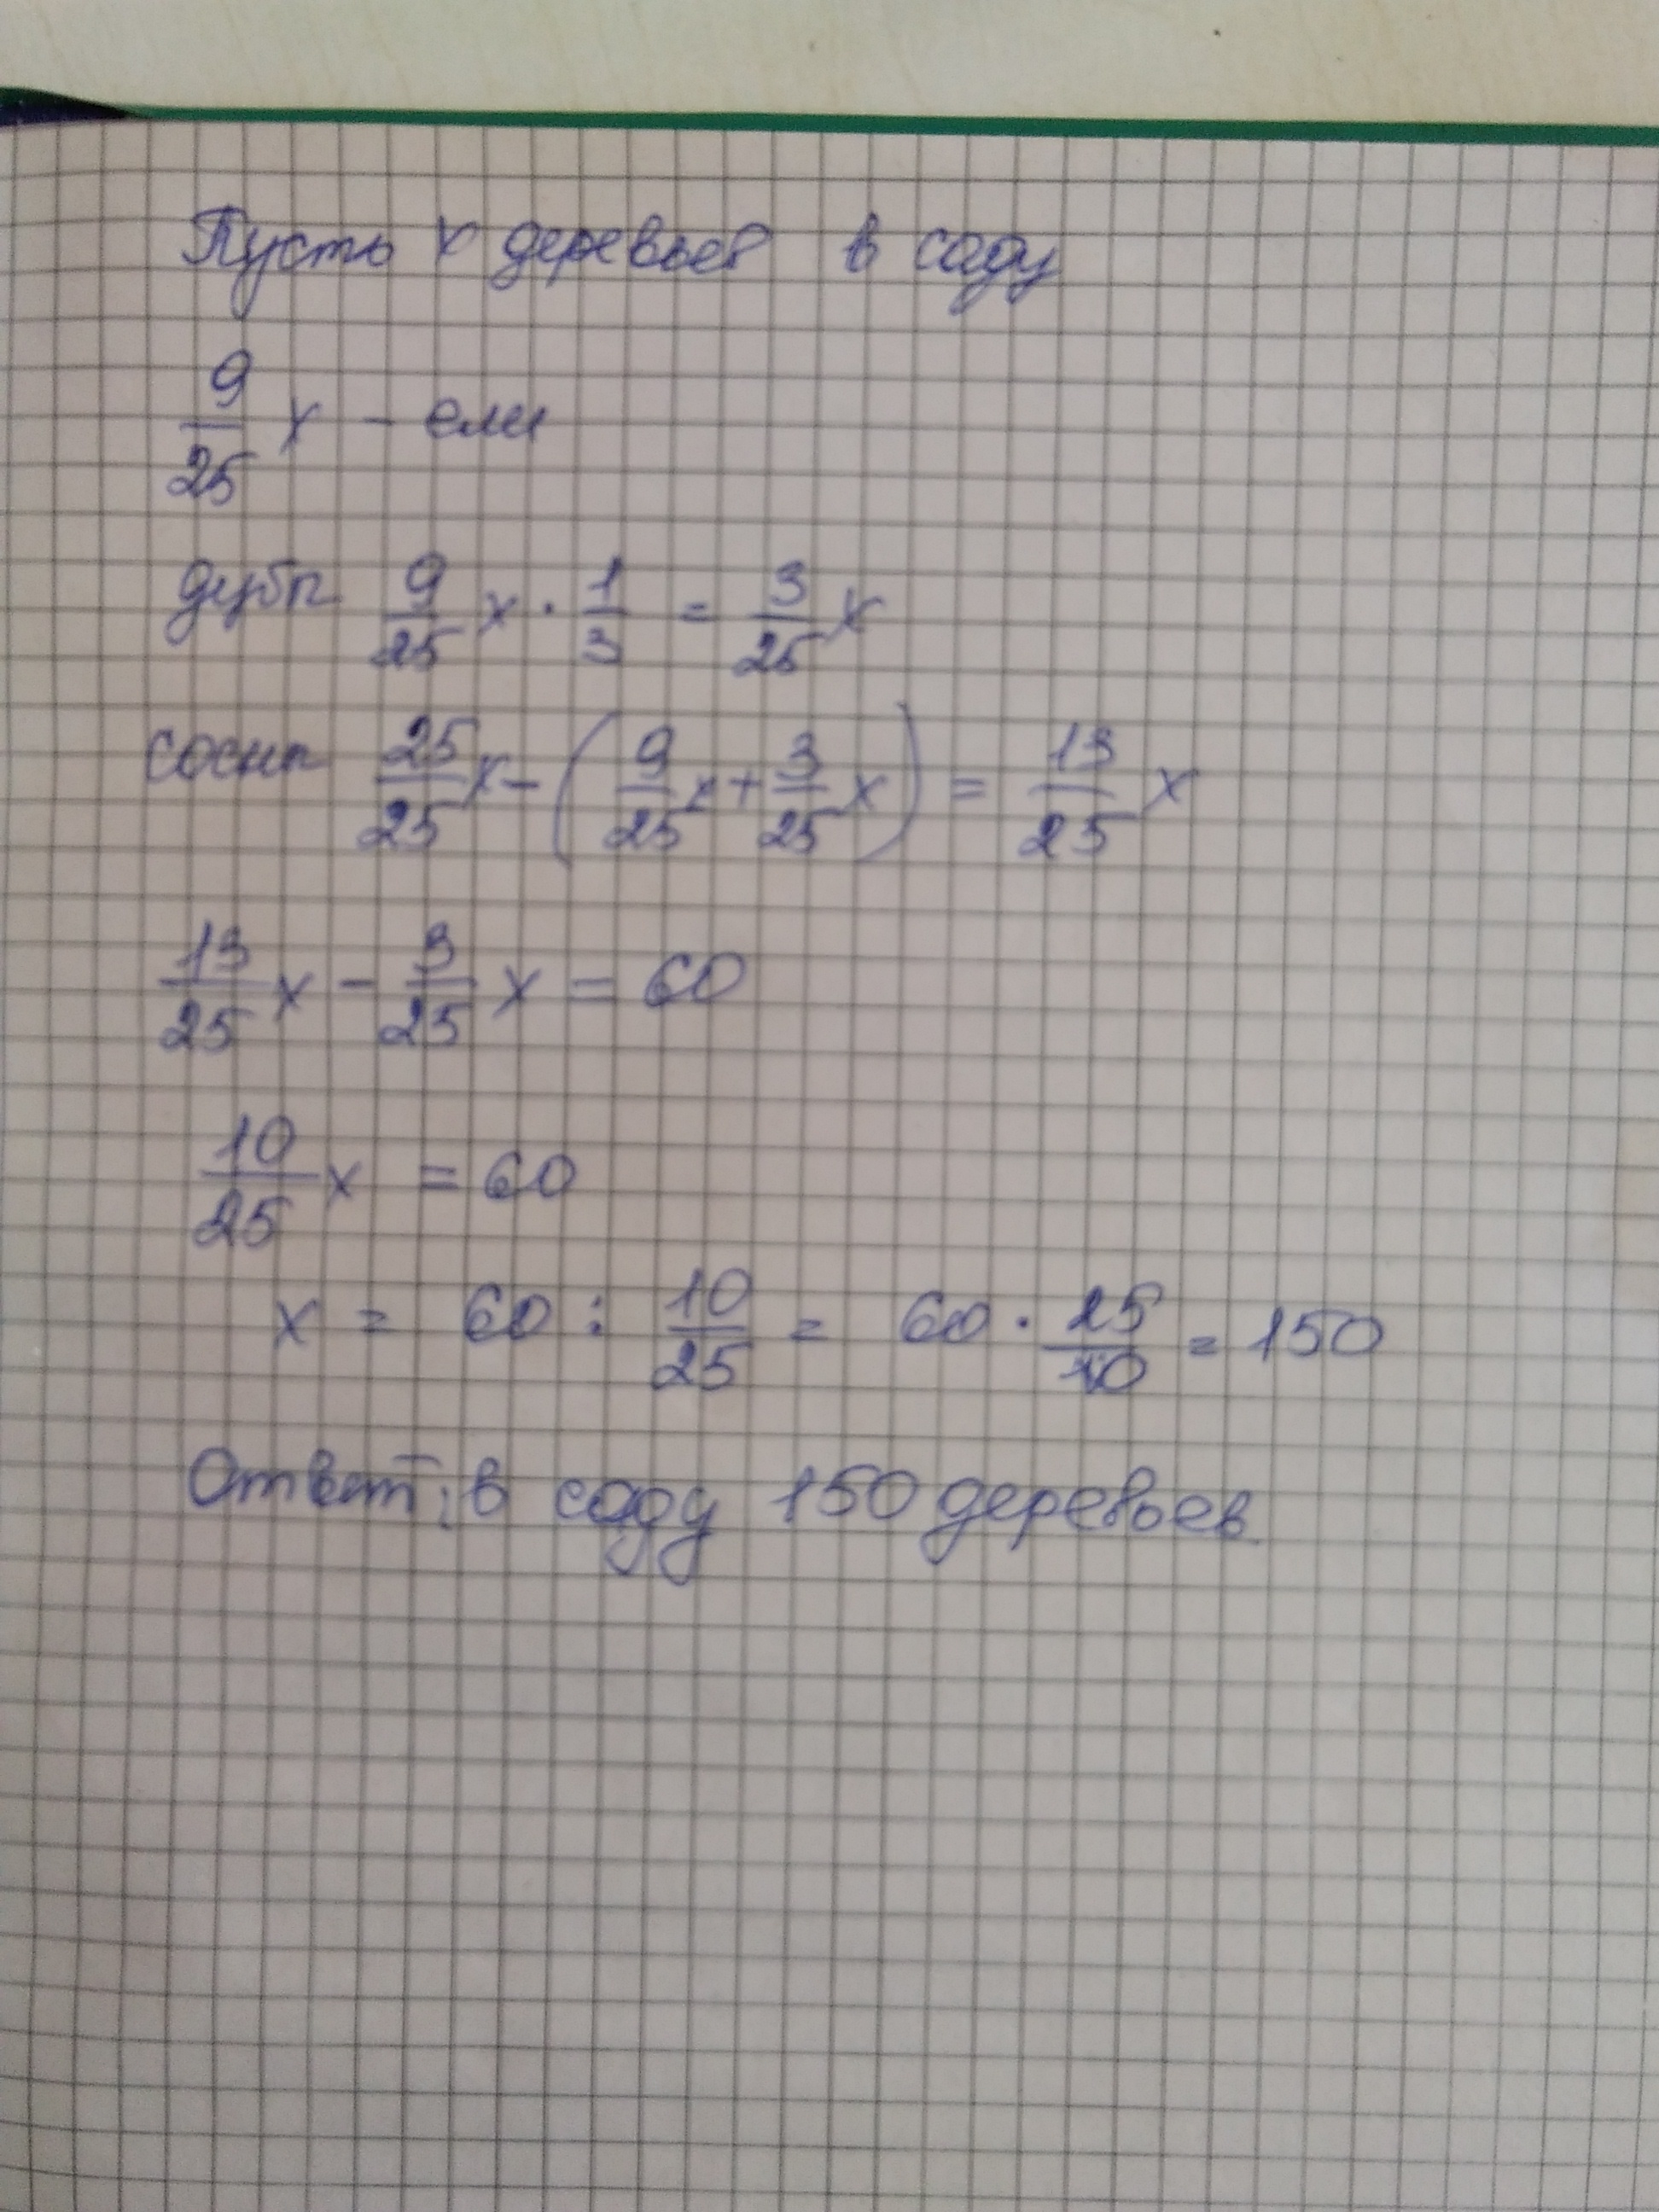 Пусть x деревьев в саду
9/25 x - ели
дубы 9/25 x · 1/3 = 3/25 x
сосны 25/25 x - (9/25 x + 3/25 x) = 13/25 x
13/25 x - 3/25 x = 60
10/25 x = 60
x = 60 : 10/25 = 60 · 25/10 = 150
Ответ: в саду 150 деревьев